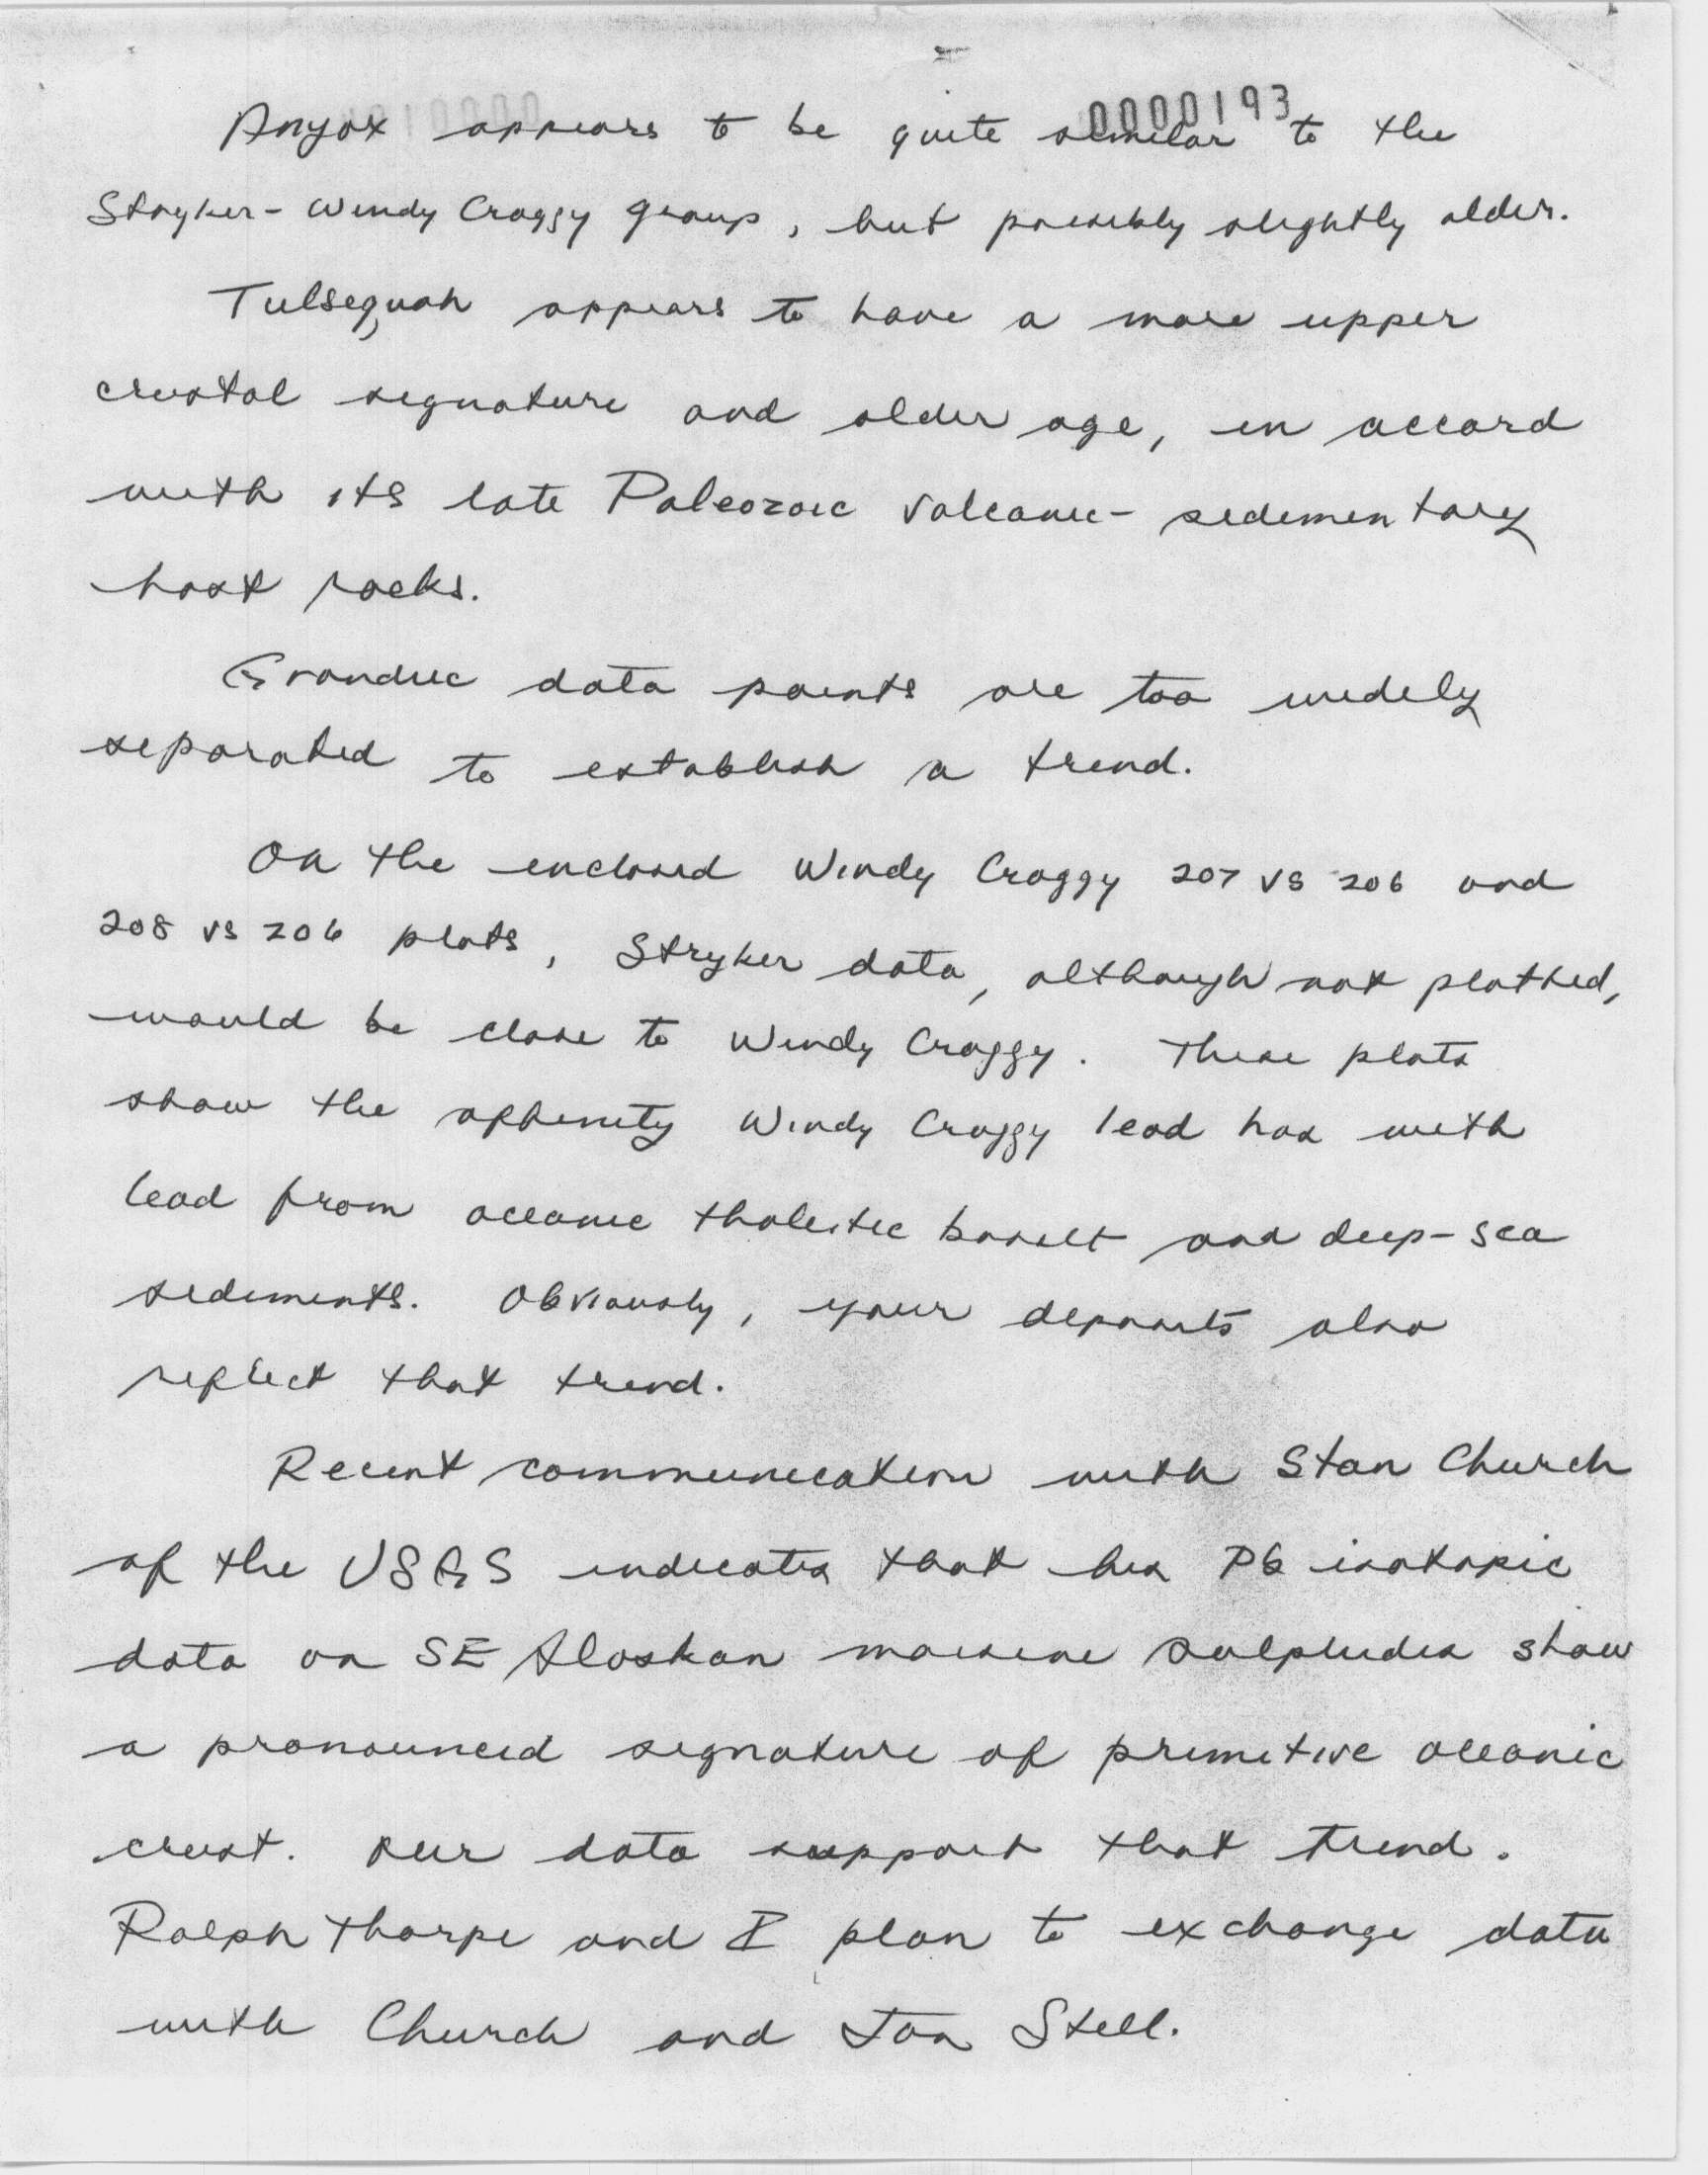 0000193
Anyox appears to be quite similar to the
Stryker-Windy Craggy group, but possibly slightly older.
Tulsequah appears to have a more upper
crustal signature and older age, in accord
with its late Paleozoic volcanic-sedimentary
host rocks.
Granduc data points are too widely
separated to establish a trend.
On the enclosed Windy Craggy 207 vs 206 and
208 vs 206 plots, Stryker data, although not plotted,
would be close to Windy Craggy. These plots
show the affinity Windy Craggy lead has with
lead from oceanic tholeitic basalt and deep-sea
sediments. Obviously, your deposits also
reflect that trend.
Recent communication with Stan Church
of the USGS indicates that his Pb isotopic
data on SE Alaskan massive sulphides show
a pronounced signature of primitive oceanic
crust. Our data support that trend.
Ralph Thorpe and I plan to exchange data
with Church and Jon Stell.